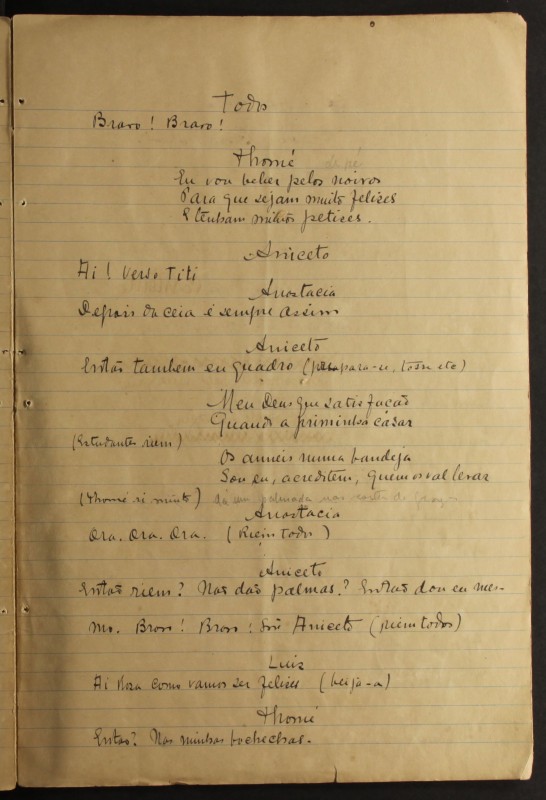 Todos
Bravo! Bravo!
Thomé de pé
Eu vou beber pelos noivos
Para que sejam muito felizes
E tenham muitos petizes.
Aniceto
Ai! Verso Titi
Anastacia
Depois da ceia é sempre assim
Aniceto
Então tambem eu quadro (prepara-se, tosse etc)
Meu Deus que satisfação
Quando a priminha casar
(Estudantes riem)
Os anneis numa bandeja
Sou eu, acreditem, quem os vai levar
(Thomé ri muito) dá um palmada nas costas do
Anastacia
Ora. Ora. Ora. (Riem todos)
Aniceto
Então riem? Não dão palmas? Então dou eu mes-
mo. Bravo! Bravo! Snr Aniceto (riem todos)
Luiz
Ai Rosa como vamos ser felizes (beija-a)
Thomé
Então? Nas minhas bochechas.